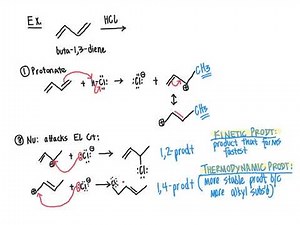 Ex. HCl
buta-1,3-diene
① Protonate
H-Cl: → :Cl:⊖ + CH₃
CH₃
② Nu: attacks EL C+:
KINETIC PRODT:
product that forms
fastest
+ :Cl:⊖ → 1,2-prodt
Cl:
THERMODYNAMIC PRODT:
+ :Cl:⊖ → 1,4-prodt (more stable prodt b/c
more alkyl subs'd)